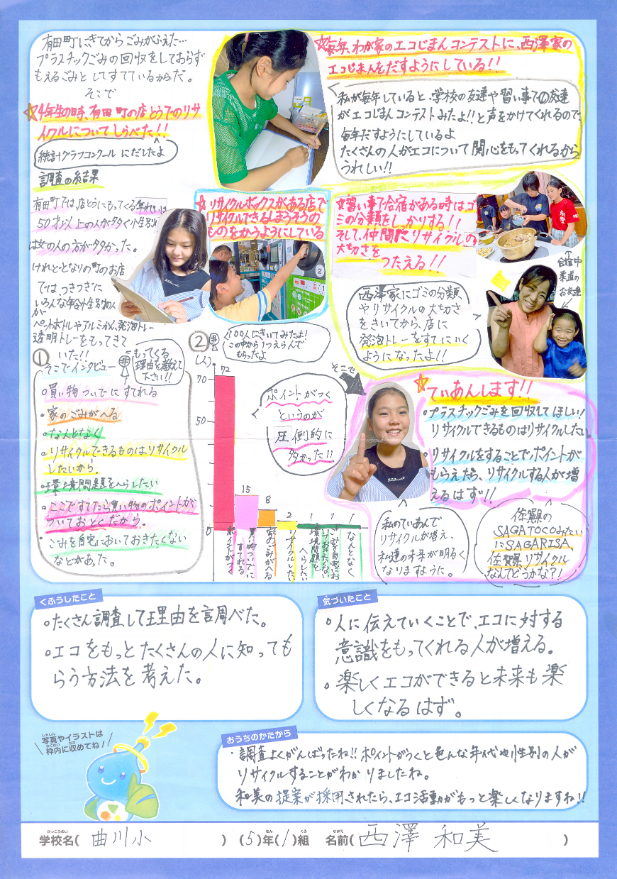 有田町にきてからごみがふえた…
プラスチックごみの回収をしておらず
もえるごみとしてすてているからだ。
そこで
☆4年生の時、有田町の店とうでのリサ
イクルについてしらべた!!
統計グラフコンクールにだしたよ
調査の結果
有田町では店とうにもってくる年れいは
50才以上の人が多く小性別
は女の人の方が多かった。
けれどとなりの町のお店
では、つぎつぎに
いろんな年令や性別の人が
ペットボトルやアルミかん、発泡トレー
透明トレーをもってきて
いた!!
☆毎年、わが家のエコじまんコンテストに、西澤家の
エコじまんをだすようにしている!!
私が毎年していると、学校の友達や習い事での友達
がエコじまんコンテストみたよ!!と声をかけてくれるので、
毎年だすようにしているよ
たくさんの人がエコについて関心をもってくれるから
うれしい!!
☆リサイクルボックスがある店で
リサイクルできるしようひそうの
ものをかうようにしている
☆習い事で合宿がある時はゴ
ミの分類をしっかりする!!
そして、仲間にリサイクルの
大切さを
つたえる!!
合宿中
家庭の
お友達
西澤家にゴミの分類
やリサイクルの大切さ
をきいてから、店に
発泡トレーをすてにいく
ようになったよ!!
①
そこでインタビュー
もってくる
理由を教えて
下さい!!
・買い物ついでにすてれる
・家のごみがへる
・なんとなく
・リサイクルできるものはリサイクル
したいから。
・環境問題をへらしたい
・ここですてたら買い物のポイントが
ついておとくだから。
・ごみを自宅においておきたくない
などがあった。
②
100人にきいてみたよ!
この中から1つえらんで
もらったよ
(人)
70
50
0
72
15
8
2
1
1
1
ポイントがつく
というのが
圧倒的に
多かった!!
そこで
☆ていあんします!!
・プラスチックごみを回収してほしい!
リサイクルできるものはリサイクルしたい
・リサイクルをすることでポイントが
もらえたら、リサイクルする人が増
えるはず!!
私のていあんで
リサイクルが増え、
私達の未来が明るく
なりますように。
佐賀の
SAGATOCOみたい
にSAGARISA
佐賀リサイクル
なんてどうかな?!
くふうしたこと
・たくさん調査して理由を調べた。
・エコをもっとたくさんの人に知っても
らう方法を考えた。
気づいたこと
・人に伝えていくことで、エコに対する
意識をもってくれる人が増える。
・楽しくエコができると未来も楽
しくなるはず。
写真やイラストは
枠内に収めてね!
おうちのかたから
・調査よくがんばったね!!ポイントがつくと色んな年代や性別の人が
リサイクルすることがわかりましたね。
和美の提案が採用されたら、エコ活動がもっと楽しくなりますね!!
学校名( 曲川小 ) (5)年(1)組 名前( 西澤 和美 )